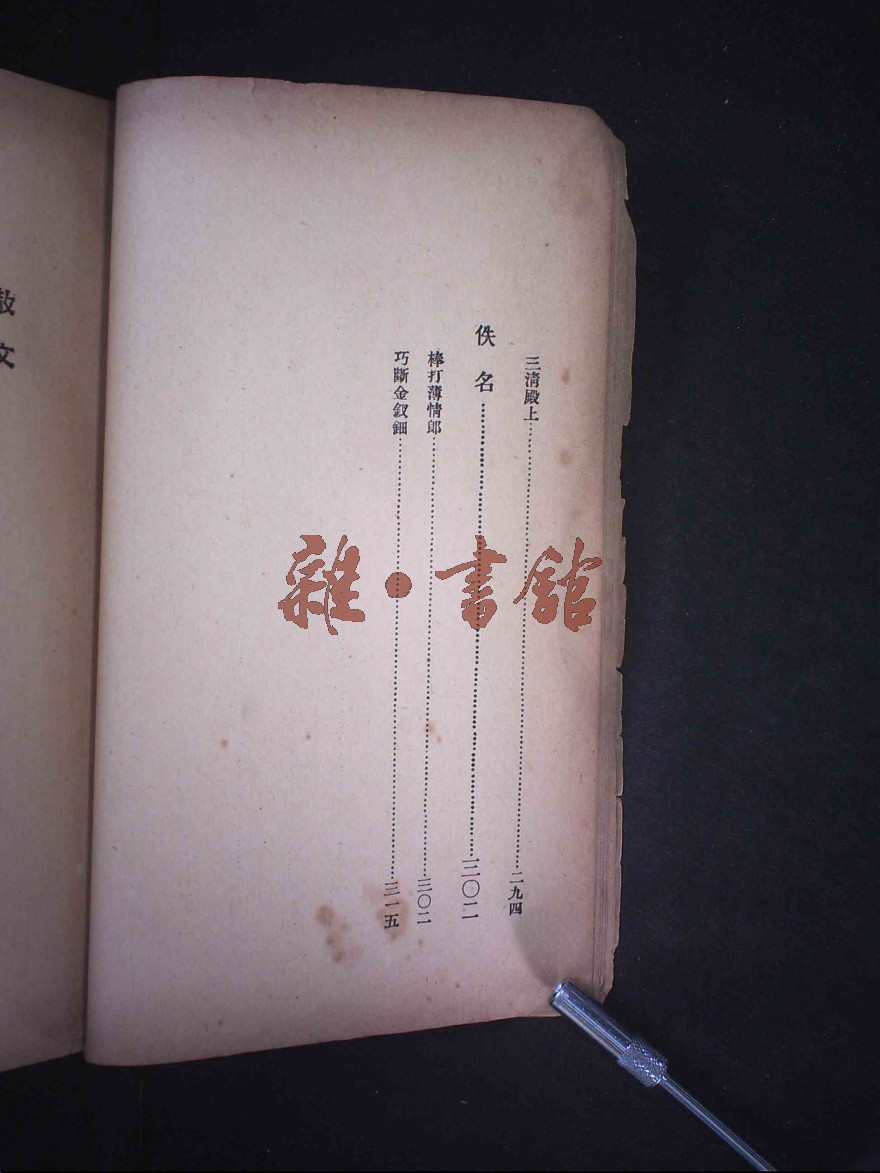 三淸殿上……二九四
佚名……三〇二
棒打薄情郎……三〇二
巧斷金釵鈿……三一五
散文
雜·書館